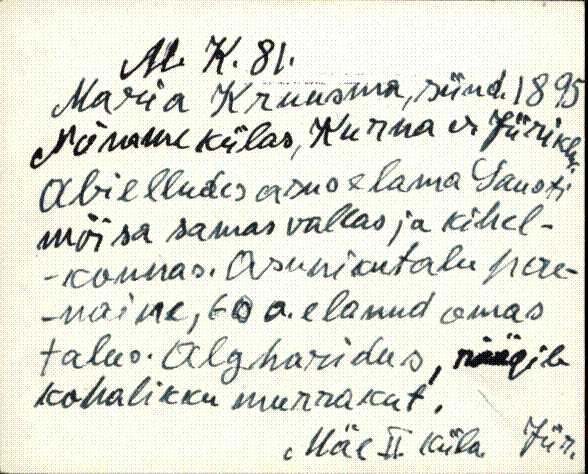 M. K. 81.
Maria Kruusma, sünd. 1895
külas, Kurna v. Jüri kihk.
Abielludes asus elama Sausti
mõisa samas vallas ja kihel-
-konnas. Asunikutalu pere-
-naine, 60 a. elanud omas
talus. Algharidus, räägib
kohalikku murrakut.
Mäe II küla Jür.